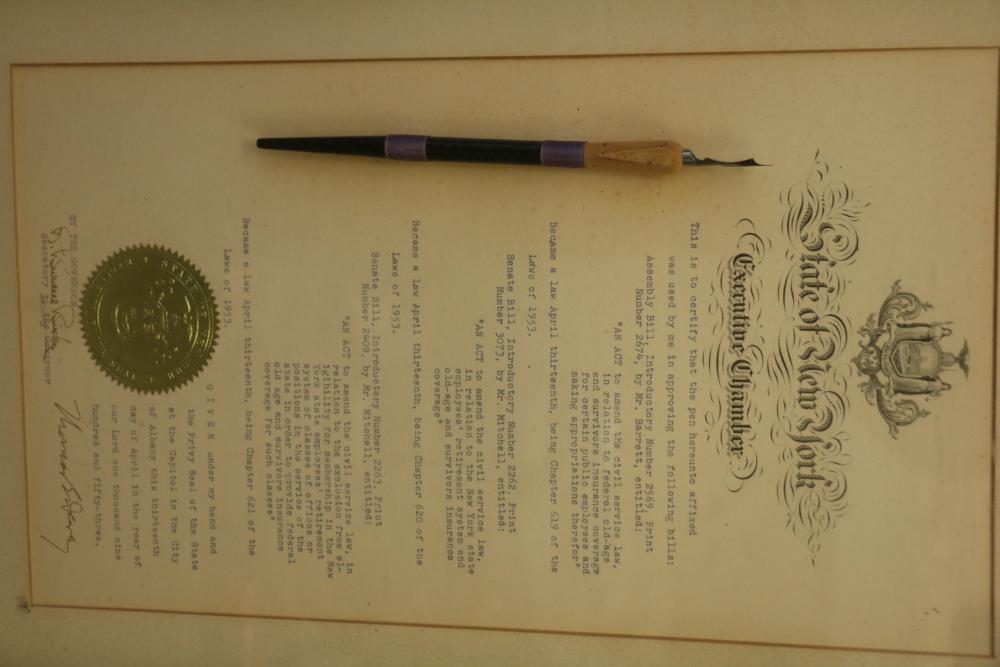 State of New York
Executive Chamber
This is to certify that the pen hereunto affixed
was used by me in approving the following bills:
Assembly Bill, Introductory Number 2569, Print
Number 2674, by Mr. Barrett, entitled:
"AN ACT to amend the civil service law,
in relation to federal old-age
and survivors insurance coverage
for certain public employees and
making appropriations therefor"
Became a law April thirteenth, being Chapter 619 of the
Laws of 1953.
Senate Bill, Introductory Number 2262, Print
Number 3073, by Mr. Mitchell, entitled:
"AN ACT to amend the civil service law,
in relation to the New York state
employees' retirement system and
old-age and survivors insurance
coverage"
Became a law April thirteenth, being Chapter 620 of the
Laws of 1953.
Senate Bill, Introductory Number 2263, Print
Number 2409, by Mr. Mitchell, entitled:
"AN ACT to amend the civil service law, in
relation to the exclusion from el-
igibility for membership in the New
York state employees' retirement
system of classes of officers or
positions in the service of the
state in order to provide federal
old age and survivors insurance
coverage for such classes"
Became a law April thirteenth, being Chapter 621 of the
Laws of 1953.
G I V E N under my hand and
the Privy Seal of the State
at the Capitol in the City
of Albany this thirteenth
day of April in the year of
our Lord one thousand nine
hundred and fifty-three.
BY THE GOVERNOR
Secretary to the Governor
Thomas E. Dewey